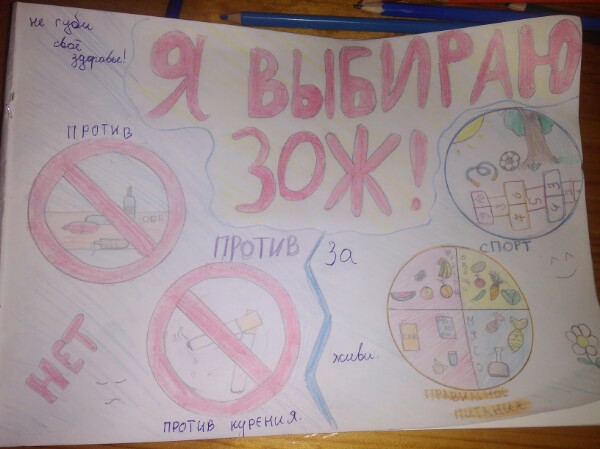 не губи
своё
здоровье!
Я ВЫБИРАЮ
ЗОЖ!
ПРОТИВ
ПРОТИВ
ЗА
СПОРТ
НЕТ
живи.
МЯСО
ПРАВИЛЬНОЕ
ПИТАНИЕ
ПРОТИВ КУРЕНИЯ.